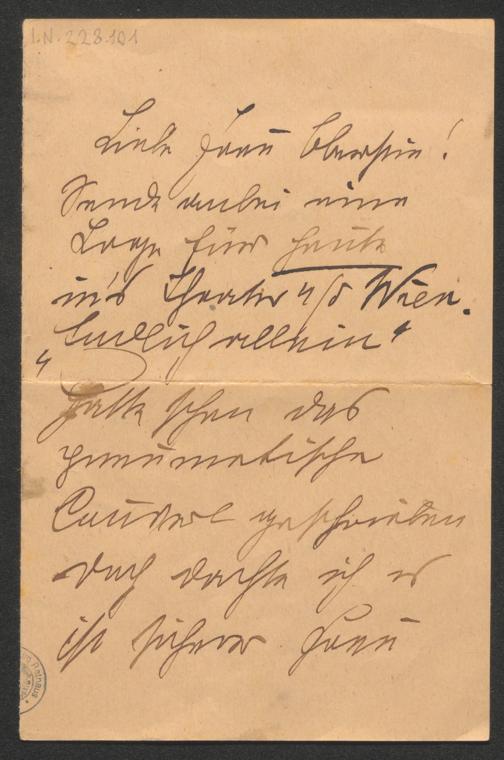 I.N. 228.101
Liebe Frau Oberstin!
Sende anbei eine
Loge für heute
in's Theater a/d Wien.
„Endlich allein“
Hatte schon das
pneumatische
Couvert geschrieben
doch dachte ich es
ist sicherer Frau